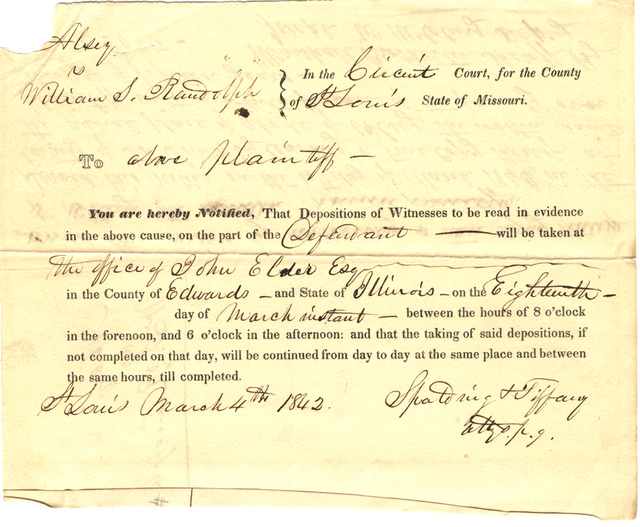 Alsey
vs
William S. Randolph
In the Circuit Court, for the County
of St Louis State of Missouri.
To above plaintiff —
You are hereby Notified, That Depositions of Witnesses to be read in evidence
in the above cause, on the part of the Defendant — will be taken at
the office of John Elder Esq
in the County of Edwards — and State of Illinois — on the Eighteenth —
day of March instant — between the hours of 8 o'clock
in the forenoon, and 6 o'clock in the afternoon: and that the taking of said depositions, if
not completed on that day, will be continued from day to day at the same place and between
the same hours, till completed.
St Louis March 4th 1842.
Spalding & Tiffany